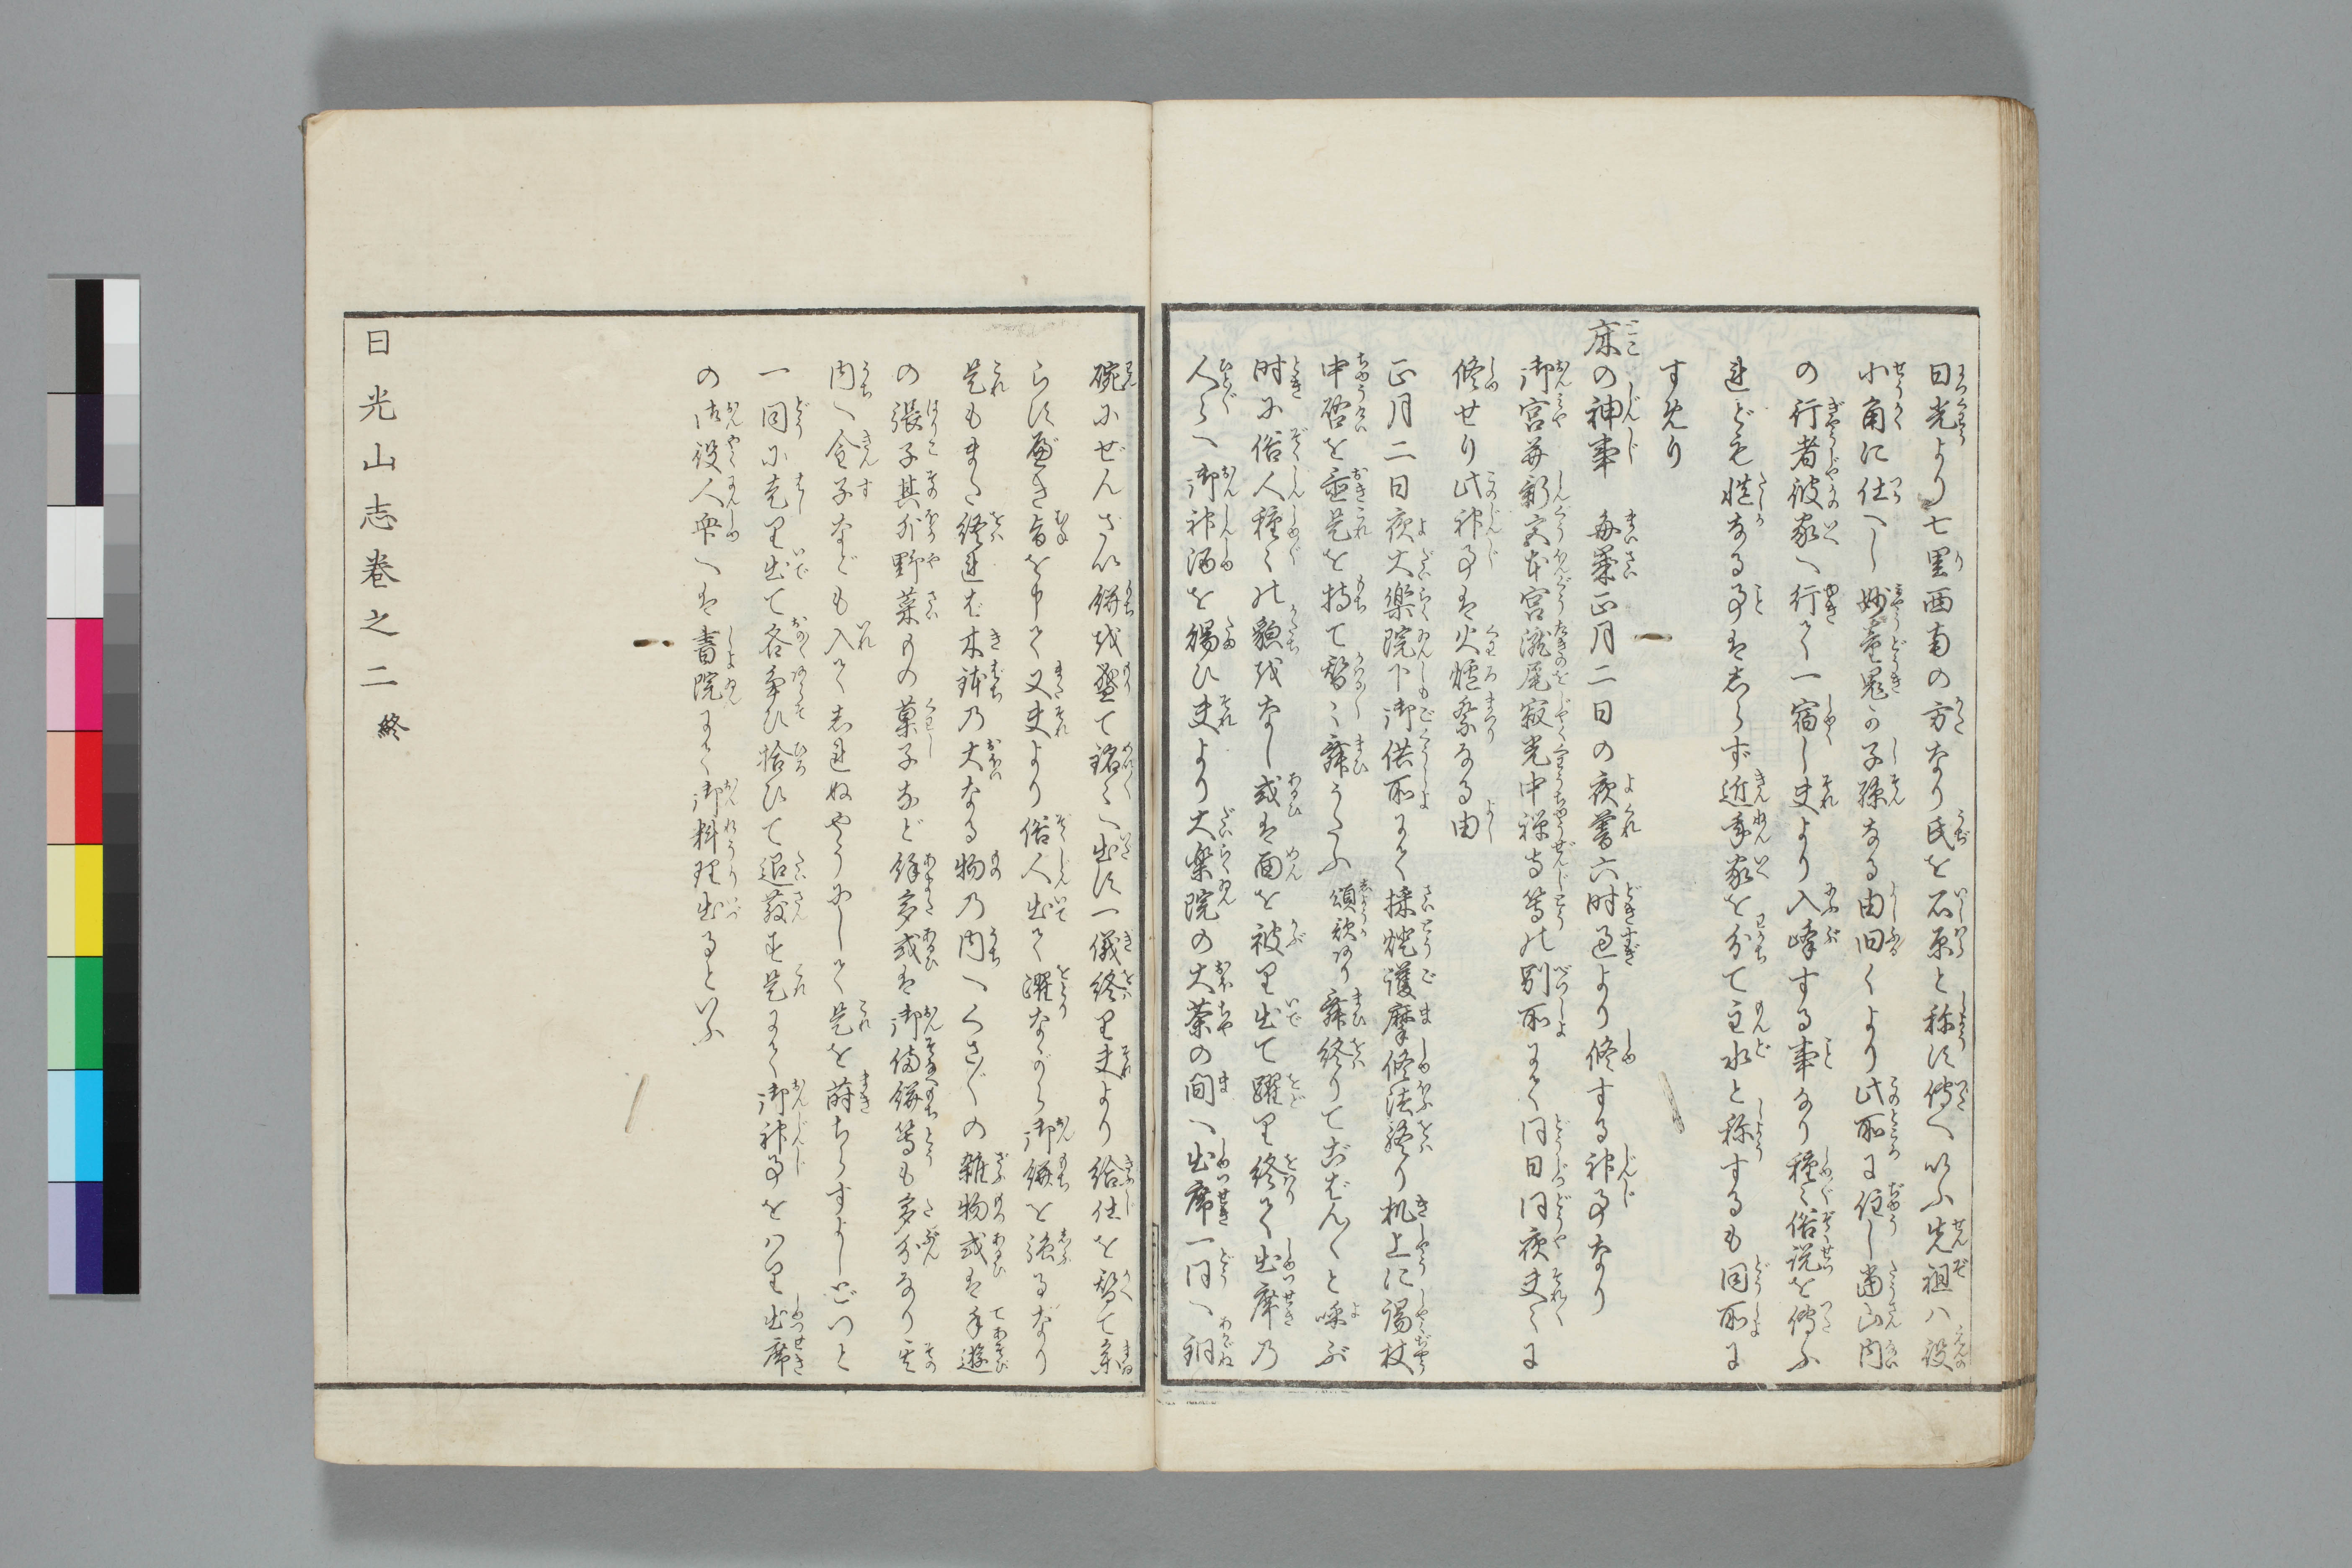 日光より七里西南の方なり氏を石原と称す伝へいふ先祖ハ役
小角に仕へし妙童鬼の子孫なる由旧くより此所に住し當山内
の行者彼家へ行き一宿し夫より入峰する事なり種々俗説を傳ふ
れども慥なる事は知らず近年家を分て主水と称するも同所に
すめり
床の神事　毎歳正月二日の夜暮六時過より修する神事なり
御宮并新宮本宮瀧尾寂光中禅寺等の別所にて同日同夜夫々に
修せり此神事は火爐祭なる由
正月二日夜大楽院下御供所にて採燈護摩修法終り机上に錫杖
中啓を置是を持て替々舞うたふ
頌歌あり
舞終りてごばん〳〵と呼ぶ
時に俗人種々の貌をなし或は面を被り出て躍り終て出席の
人々へ御神酒を賜ひ夫より大楽院の大茶の間へ出席一同へ銅
碗にぜんざい餅を盛て銘々へ出す一儀終り夫より給仕を替て参
らすべき旨を申て又夫より俗人出て躍ながら御餅を強るなり
是もまた終れば木鉢の大なる物の内へくさ〴〵の雑物或は手遊
の張子其外野菜もの菓子など餘多或は御備餅等も多分なり其
内へ金子なども入て志れぬやうにして是を蒔ちらすよしどつと
一同に走り出て各争ひ拾ひて退散す是にて御神事をハり出席
の御役人衆へは書院にて御料理出るといふ
日光山志巻之二 終